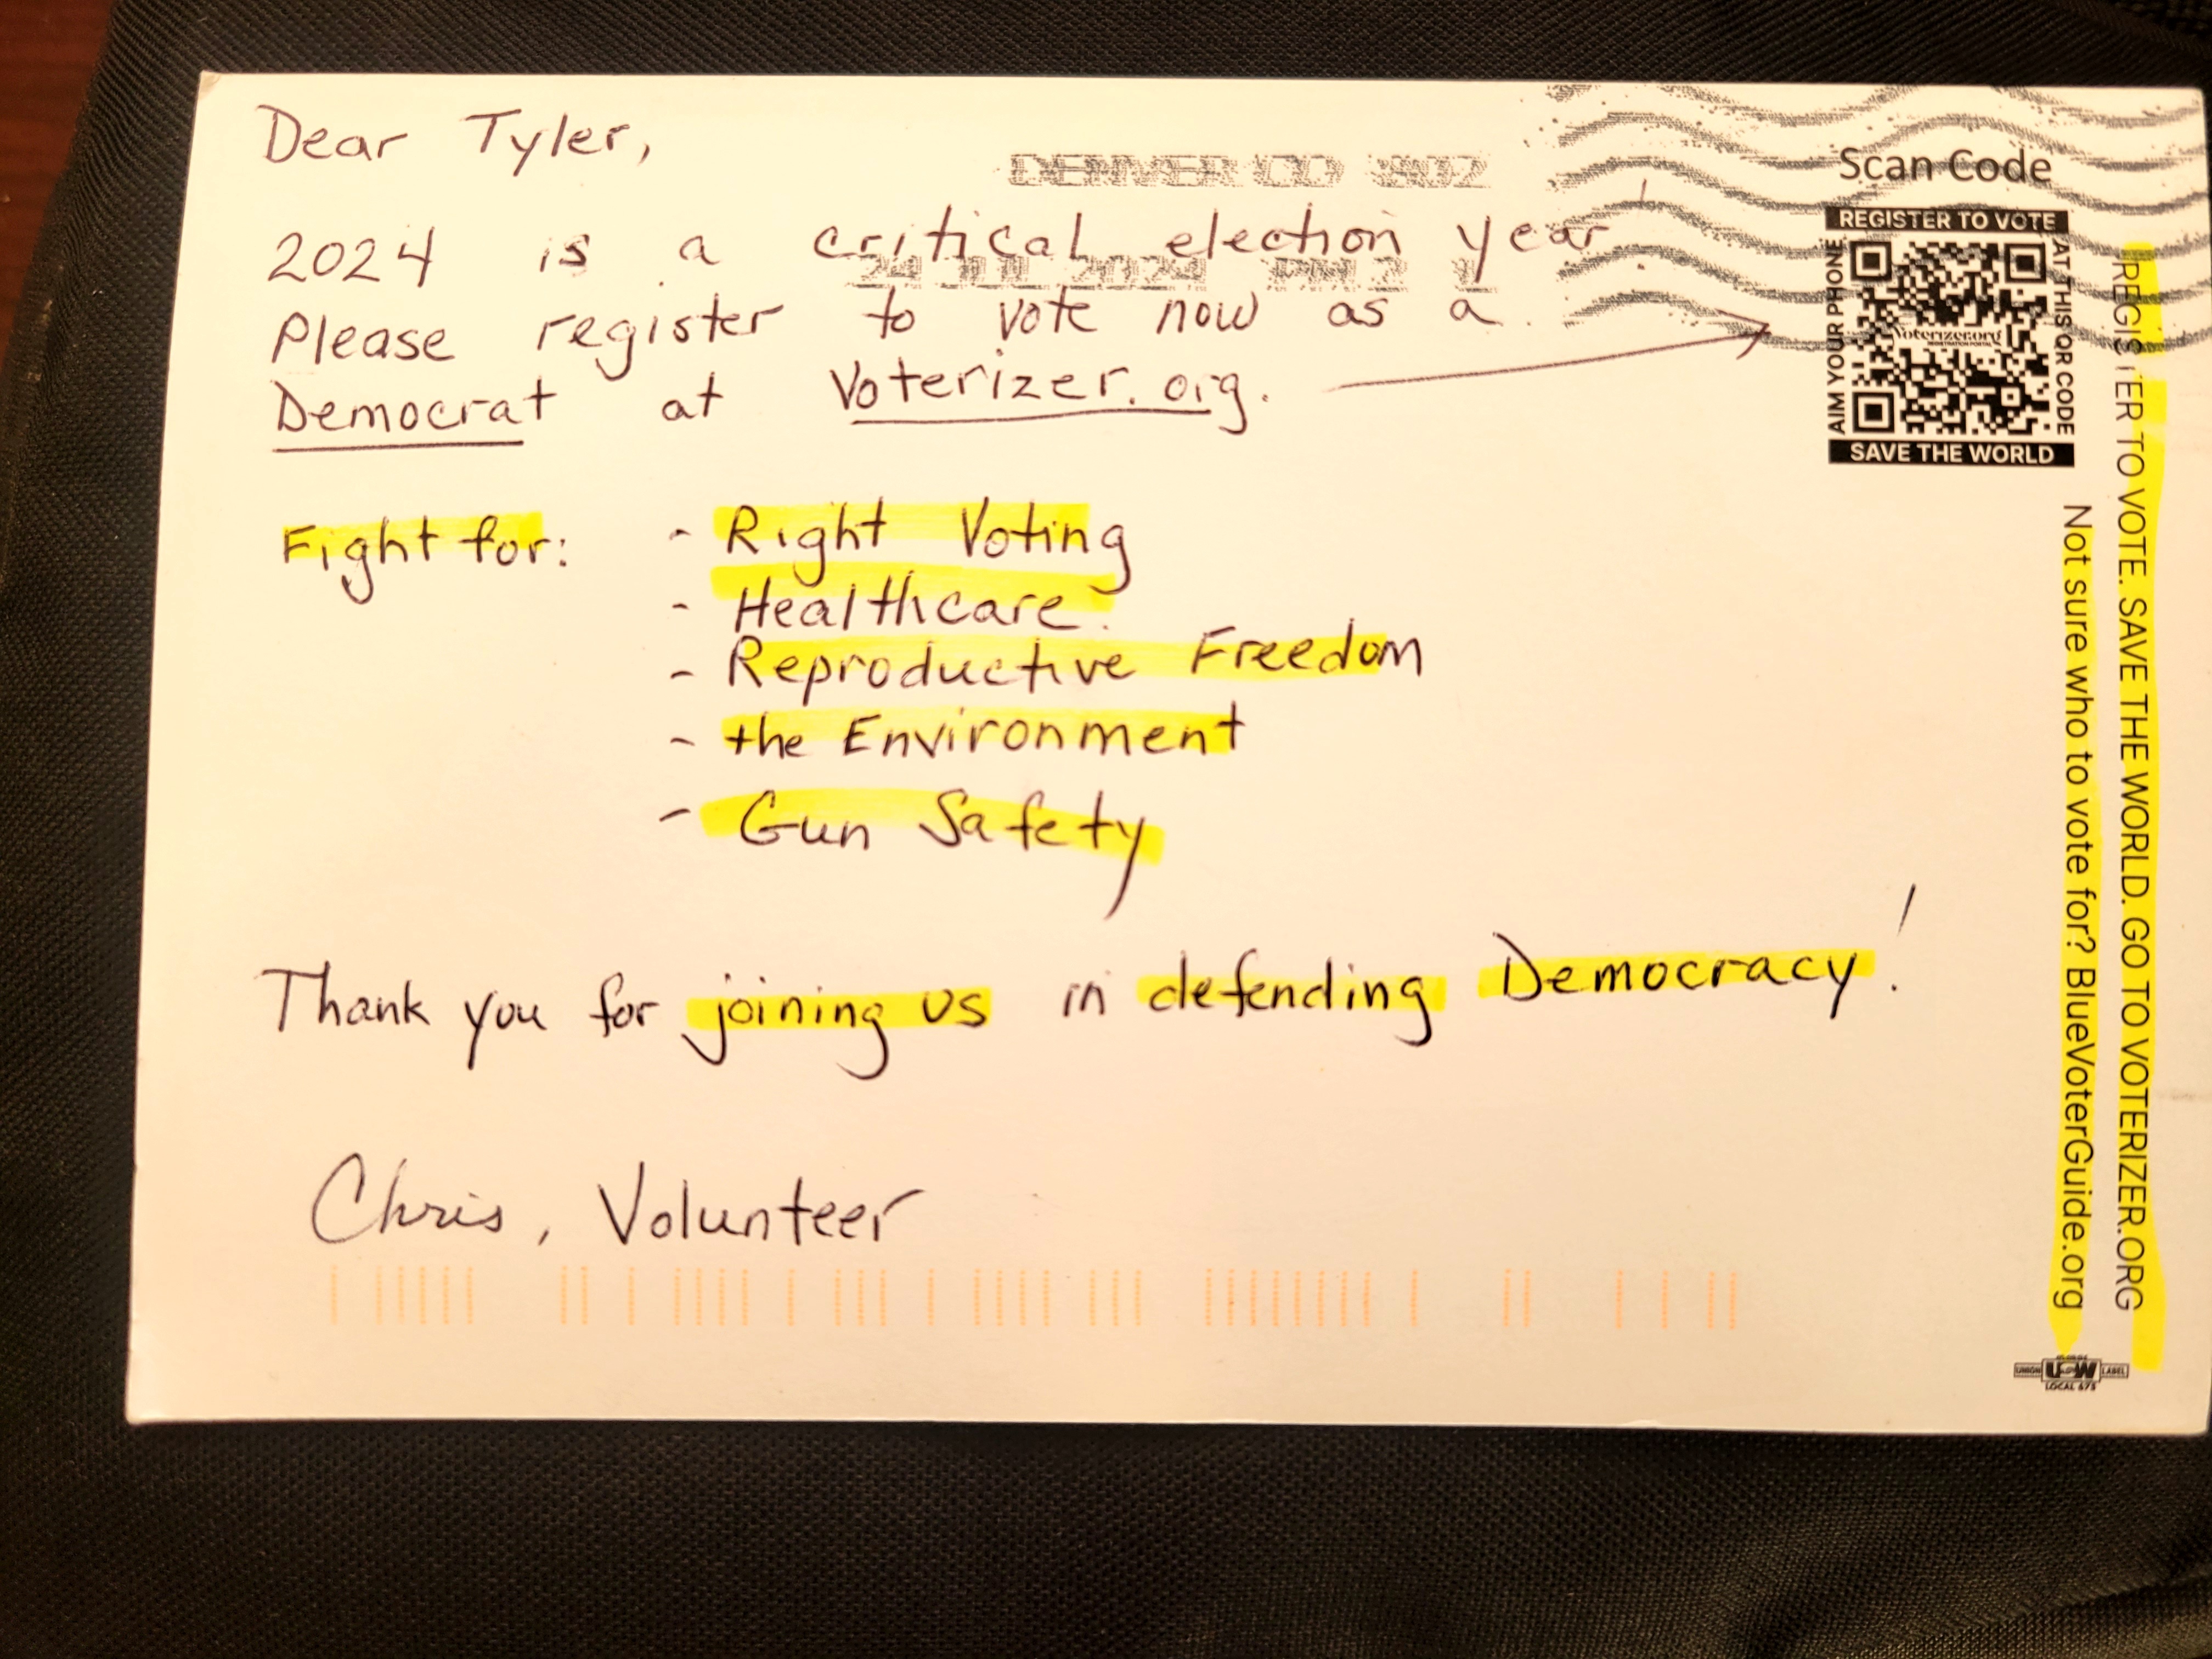 Dear Tyler,
DENVER CO 802
2024 is a critical election year!
24 JUL 2024 PM 2 L
Please register to vote now as a
Democrat at Voterizer.org.
Fight for: - Right Voting
- Healthcare
- Reproductive Freedom
- the Environment
- Gun Safety
Thank you for joining us in defending Democracy!
Chris, Volunteer
Scan Code
REGISTER TO VOTE
AIM YOUR PHONE
AT THIS QR CODE
Voterizer.org
SAVE THE WORLD
REGISTER TO VOTE. SAVE THE WORLD. GO TO VOTERIZER.ORG
Not sure who to vote for? BlueVoterGuide.org
UNION LABEL
LOCAL 675